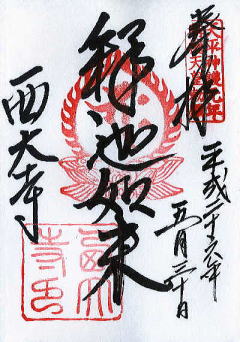 奉拝
平成二十六年
五月三十日
釋迦如来
西大寺
西大
寺印